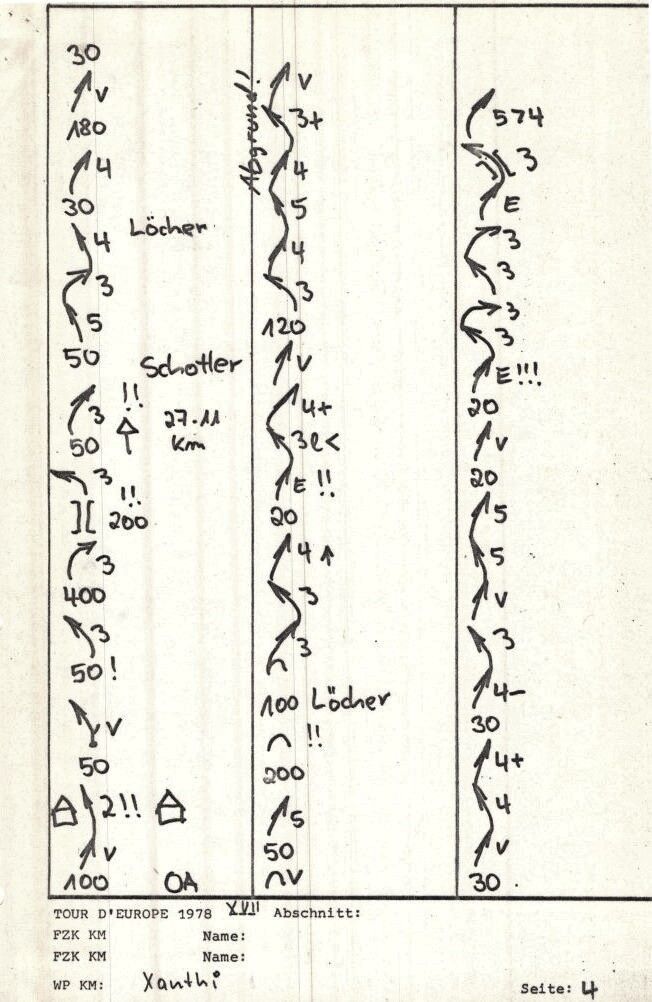 30
v
180
4
30
4 Löcher
3
5
50
Schotter
3 !!
50 27.11
km
3
!!
][ 200
3
400
3
50!
v
50
2!!
v
100 OA
Abgrund!!
v
3+
4
5
4
3
120
v
4+
3e<
E !!
20
4
3
3
100 Löcher
!!
200
5
50
v
574
3
E
3
3
3
3
E!!!
20
v
20
5
5
v
3
4-
30
4+
4
v
30
TOUR D'EUROPE 1978 XVII Abschnitt:
FZK KM Name:
FZK KM Name:
WP KM: Xanthi
Seite: 4